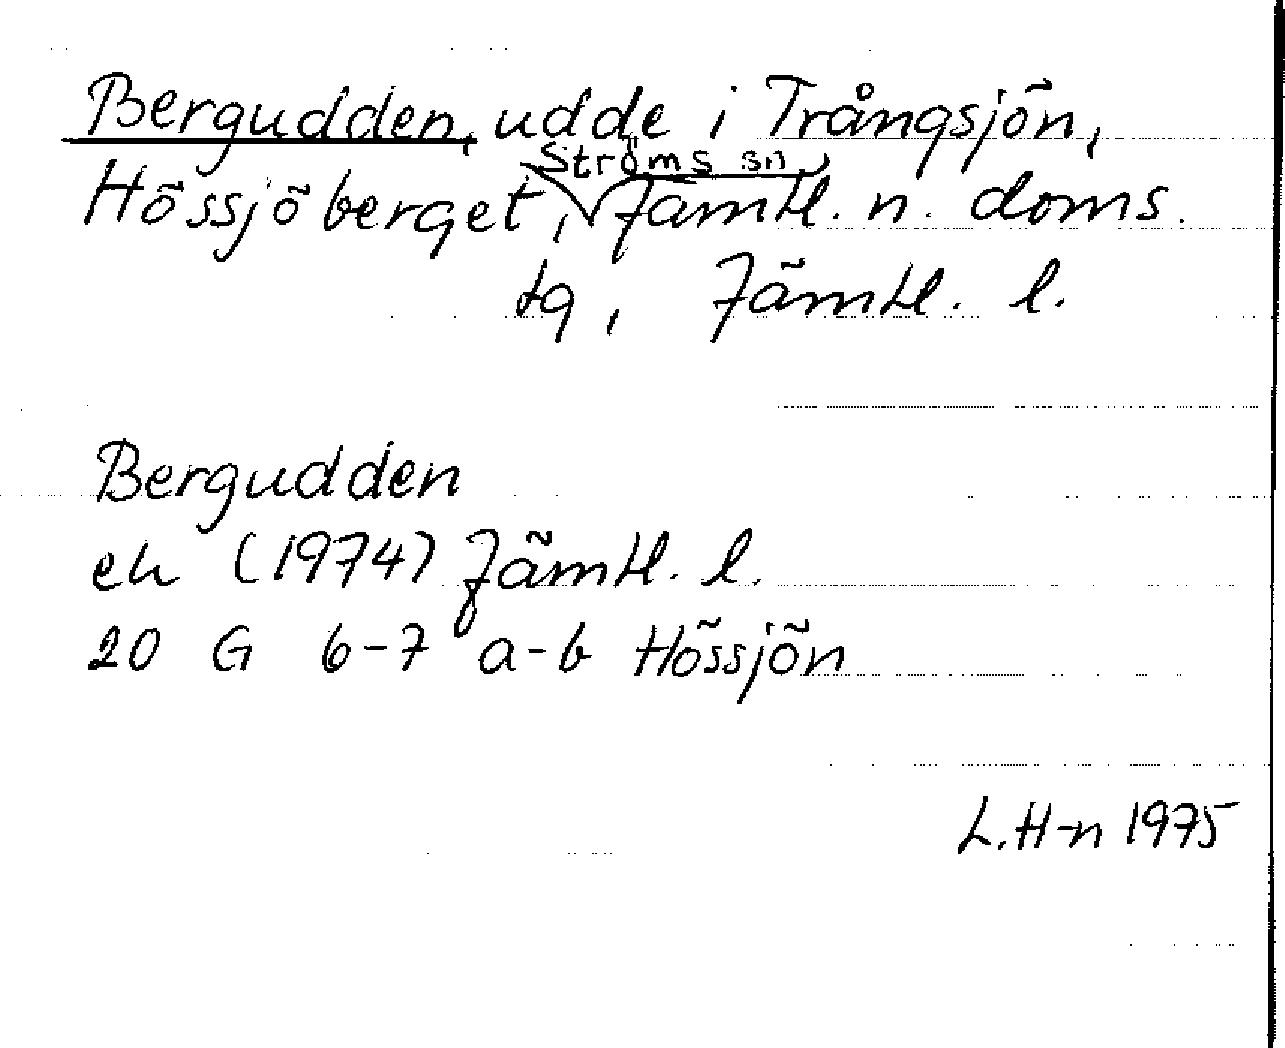 Bergudden, udde i Trångsjön,
Hössjöberget, Ströms sn, Jämtl. n. doms.
tg, Jämtl. l.
Bergudden
ek (1974) Jämtl. l.
20 G 6-7 a-b Hössjön
L. H-n 1975